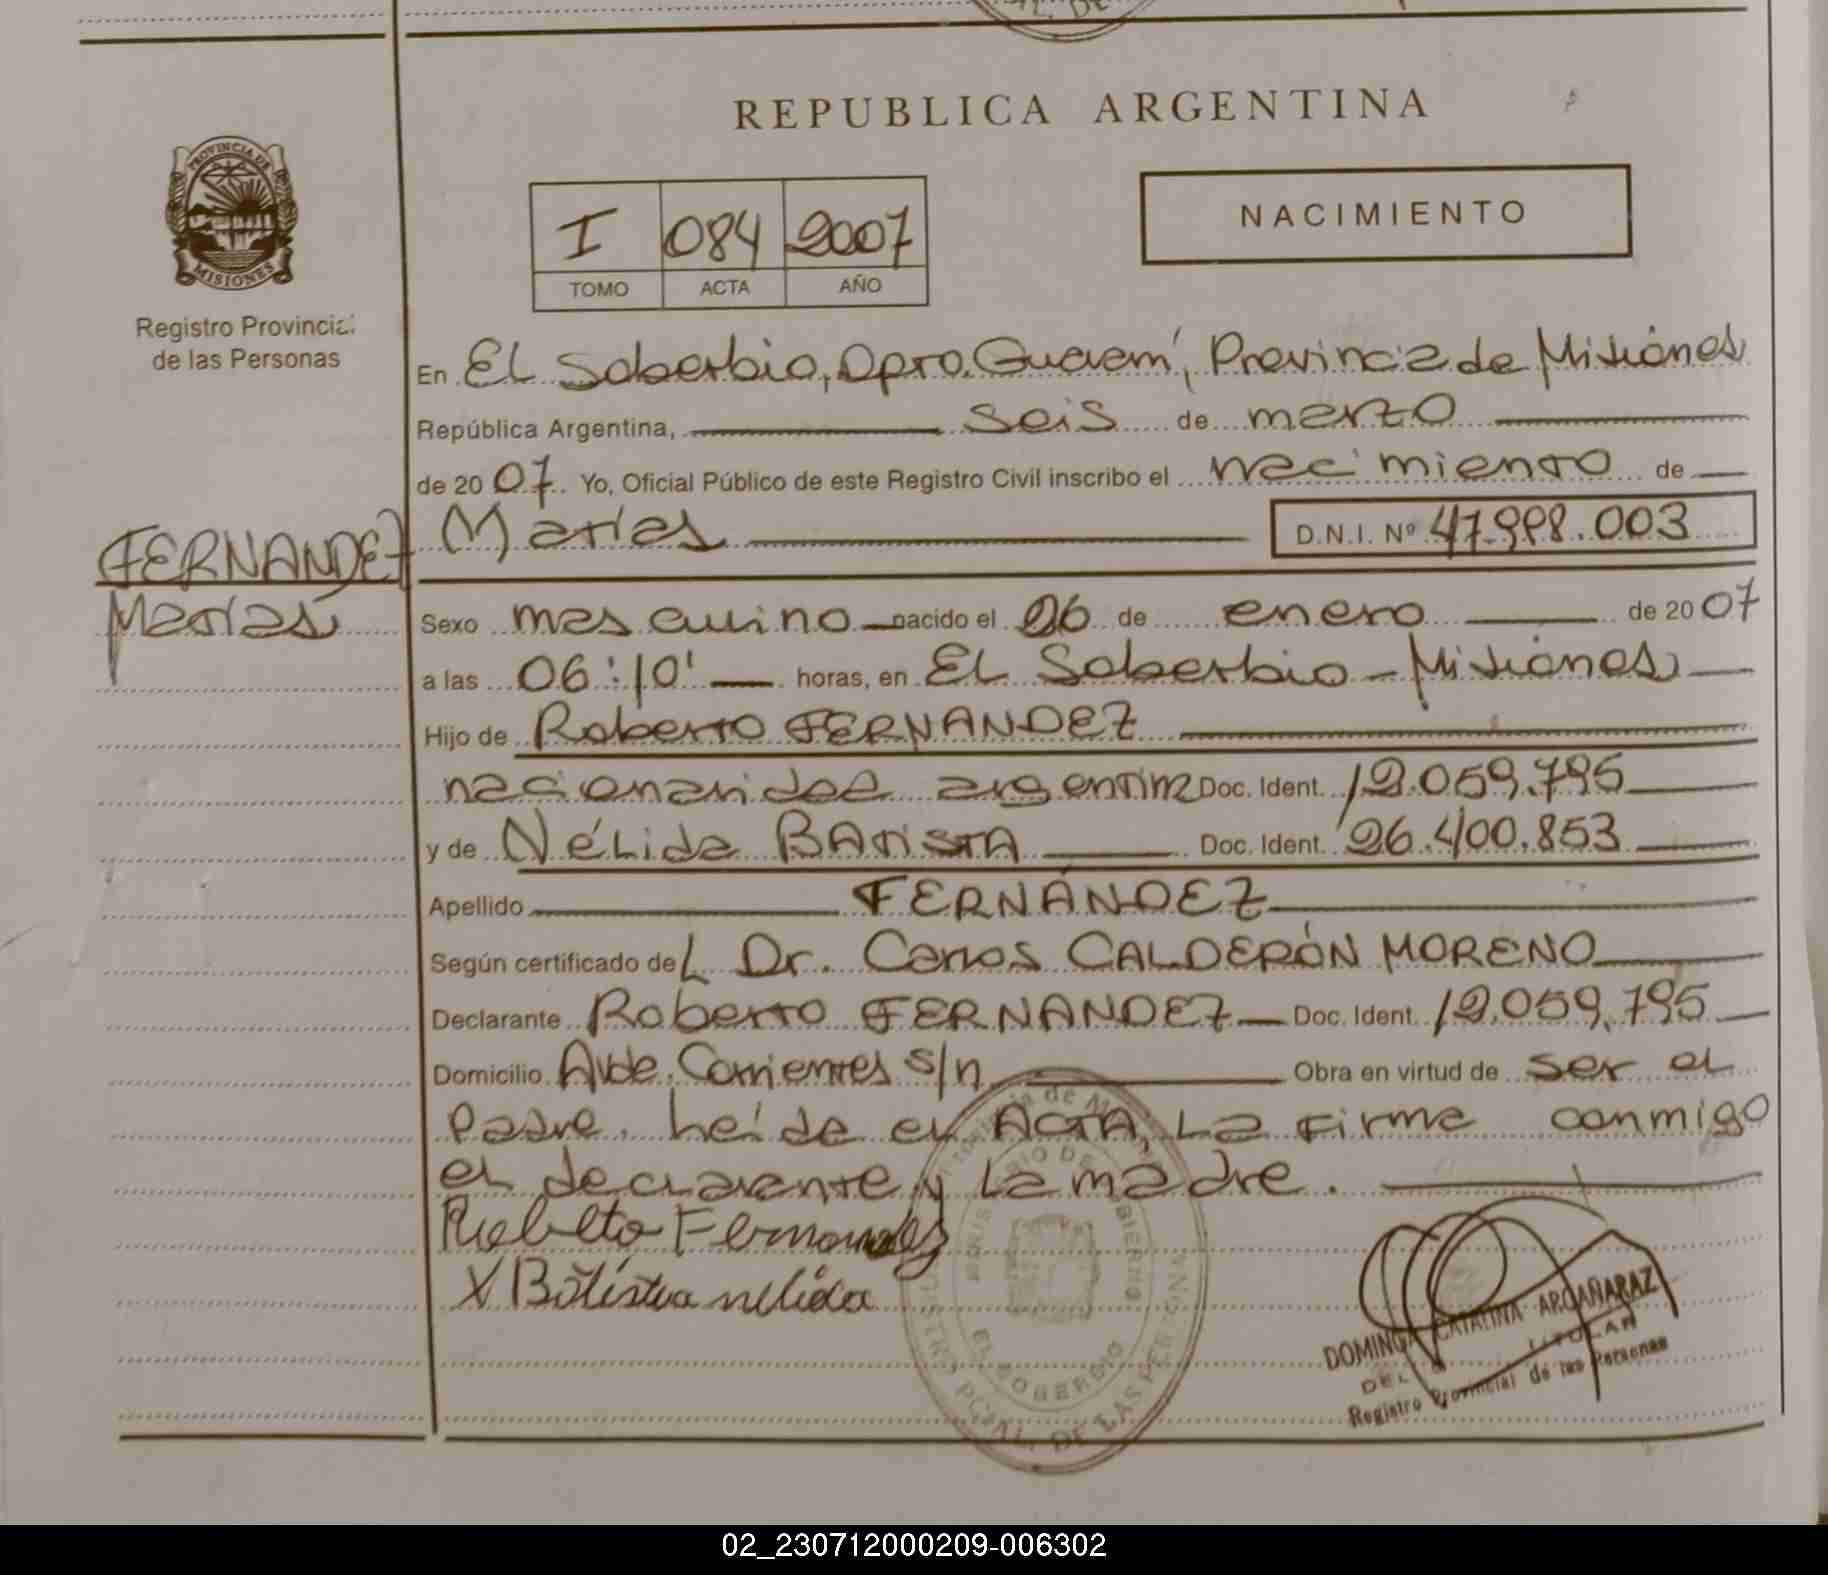 REPUBLICA ARGENTINA
PROVINCIA DE
MISIONES
Registro Provincial
de las Personas
I 084 2007
TOMO ACTA AÑO
NACIMIENTO
En El Soberbio, Dpto. Guaraní, Provincia de Misiones
República Argentina, seis de marzo
de 2007. Yo, Oficial Público de este Registro Civil inscribo el nacimiento de
FERNANDEZ Matías D.N.I. Nº 47.998.003
Matías
Sexo masculino nacido el 26 de enero de 2007
a las 06:10' horas, en El Soberbio - Misiones
Hijo de Roberto FERNANDEZ
nacionalidad argentina Doc. Ident. 12.059.795
y de Nélida BATISTA Doc. Ident. 26.400.853
Apellido FERNÁNDEZ
Según certificado del Dr. Carlos CALDERÓN MORENO
Declarante Roberto FERNANDEZ Doc. Ident. 12.059.795
Domicilio Avda. Corrientes s/n Obra en virtud de ser el
padre. Leída el ACTA, la firma conmigo
el declarante y la madre.
Roberto Fernandez
X Batista nelida
EL SOBERBIO
DOMINGA CATALINA ARGAÑARAZ
TITULAR
Registro Provincial de las Personas
02_230712000209-006302